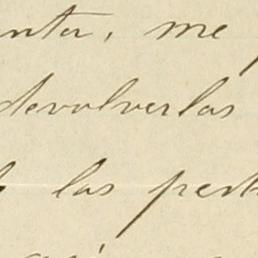 nta, me
devolverlas
las pert